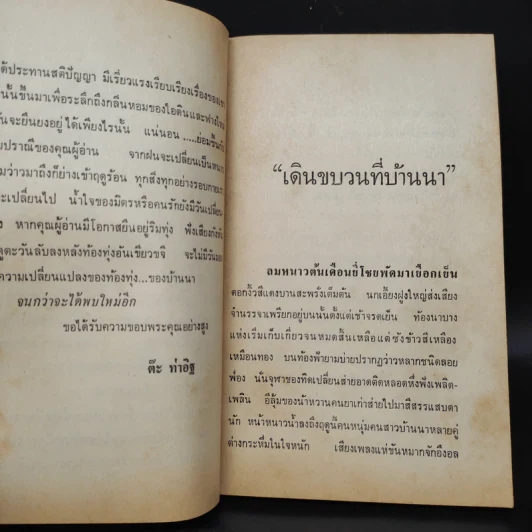 ด้ประทานสติปัญญา มีเรี่ยวแรงเรียบเรียงเรื่องของ
นั้นขึ้นมาเพื่อระลึกถึงกลิ่นหอมของไอดินและฟาง
จะยืนยงอยู่ได้เพียงไรนั้น แน่นอน.....ย่อมขึ้น
ปราณีของคุณผู้อ่าน จากฝนจะเปลี่ยนเป็น
ว่าวมาถึงก็ย่างเข้าฤดูร้อน ทุกสิ่งทุกอย่างรอบกาย
เปลี่ยนไป น้ำใจของมิตรหรือคนรักยังมีวันเปลี่ยน
หากคุณผู้อ่านมีโอกาสยืนอยู่ริมทุ่ง พึงเสียงกัง
ดูตะวันลับลงหลังท้องทุ่งอันเขียวขจี จะไม่มีวัน
ความเปลี่ยนแปลงของท้องทุ่ง...ของบ้านนา
จนกว่าจะได้พบใหม่อีก
ขอได้รับความขอบพระคุณอย่างสูง
ต๊ะ ท่าอิฐ
“เดินขบวนที่บ้านนา”
ลมหนาวต้นเดือนยี่โชยพัดมาเยือกเย็น
ดอกงิ้วสีแดงบานสะพรั่งเต็มต้น นกเอี้ยงฝูงใหญ่ส่งเสียง
จำนรรจาเพรียกอยู่บนนั้นตั้งแต่เช้าจรดเย็น ท้องนาบาง
แห่งเริ่มเก็บเกี่ยวจนหมดสิ้นเหลือแต่ซังข้าวสีเหลือง
เหมือนทอง บนท้องฟ้ายามบ่ายปรากฏว่าวหลากชนิดลอย
ฟ่อง นั่นจุฬาของทิดเปลี่ยนส่ายอาดติดหลอดหึ่งฟังเพลิด-
เพลิน อีลุ้มของน้าหวานคนยาเก่าส่ายไปมาสีสรรแสบตา
นัก หน้าหนาวน้ำลงถึงฤดูนี้คนหนุ่มคนสาวบ้านนาหลายคู่
ต่างกระหึ่มในใจหนัก เสียงเพลงแห่ขันหมากจักอึงอล